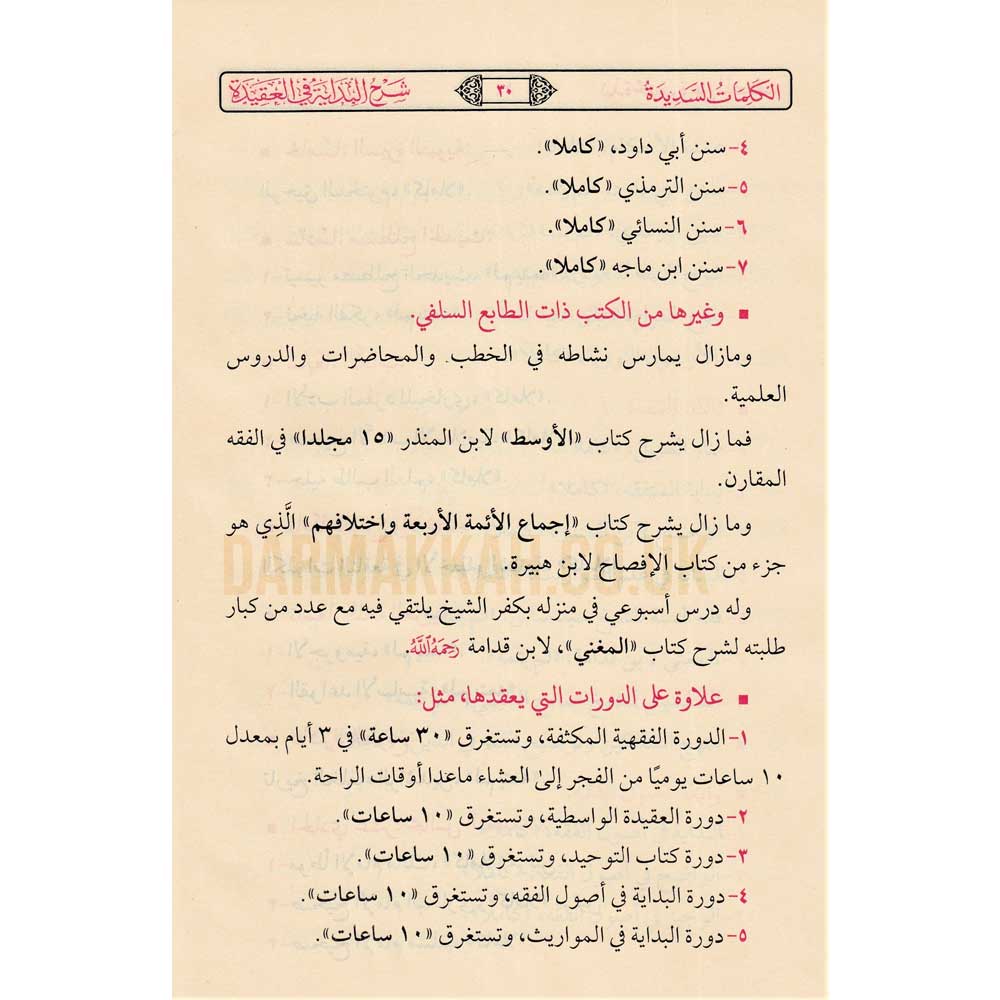 الكلمات السديدة ٣٠ شرح البداية في العقيدة
٤- سنن أبي داود، «كاملا».
٥- سنن الترمذي «كاملا».
٦- سنن النسائي «كاملا».
٧- سنن ابن ماجه «كاملا».
■ وغيرها من الكتب ذات الطابع السلفي.
ومازال يمارس نشاطه في الخطب والمحاضرات والدروس
العلمية.
فما زال يشرح كتاب «الأوسط» لابن المنذر «١٥ مجلدا» في الفقه
المقارن.
وما زال يشرح كتاب «إجماع الأئمة الأربعة واختلافهم» الَّذِي هو
جزء من كتاب الإفصاح لابن هبيرة.
DARMAKKAH.CO.UK
وله درس أسبوعي في منزله بكفر الشيخ يلتقي فيه مع عدد من كبار
طلبته لشرح كتاب «المغني»، لابن قدامة رَحِمَهُ ٱللَّهُ.
■ علاوة على الدورات التي يعقدها، مثل:
١- الدورة الفقهية المكثفة، وتستغرق «٣٠ ساعة» في ٣ أيام بمعدل
١٠ ساعات يوميًا من الفجر إلىٰ العشاء ماعدا أوقات الراحة.
٢- دورة العقيدة الواسطية، وتستغرق «١٠ ساعات».
٣- دورة كتاب التوحيد، وتستغرق «١٠ ساعات».
٤- دورة البداية في أصول الفقه، وتستغرق «١٠ ساعات».
٥- دورة البداية في المواريث، وتستغرق «١٠ ساعات».